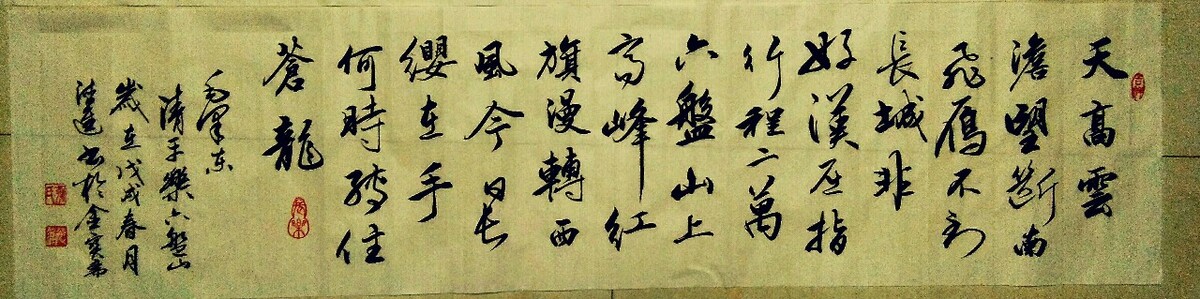 天高雲
澹望斷南
飛鴈不到
長城非
好漢屈指
行程二萬
六盤山上
高峰紅
旗漫轉西
風今日長
纓在手
何時縛住
蒼龍
毛澤東
清平樂六盤山
歲在戊戌春月
书於金